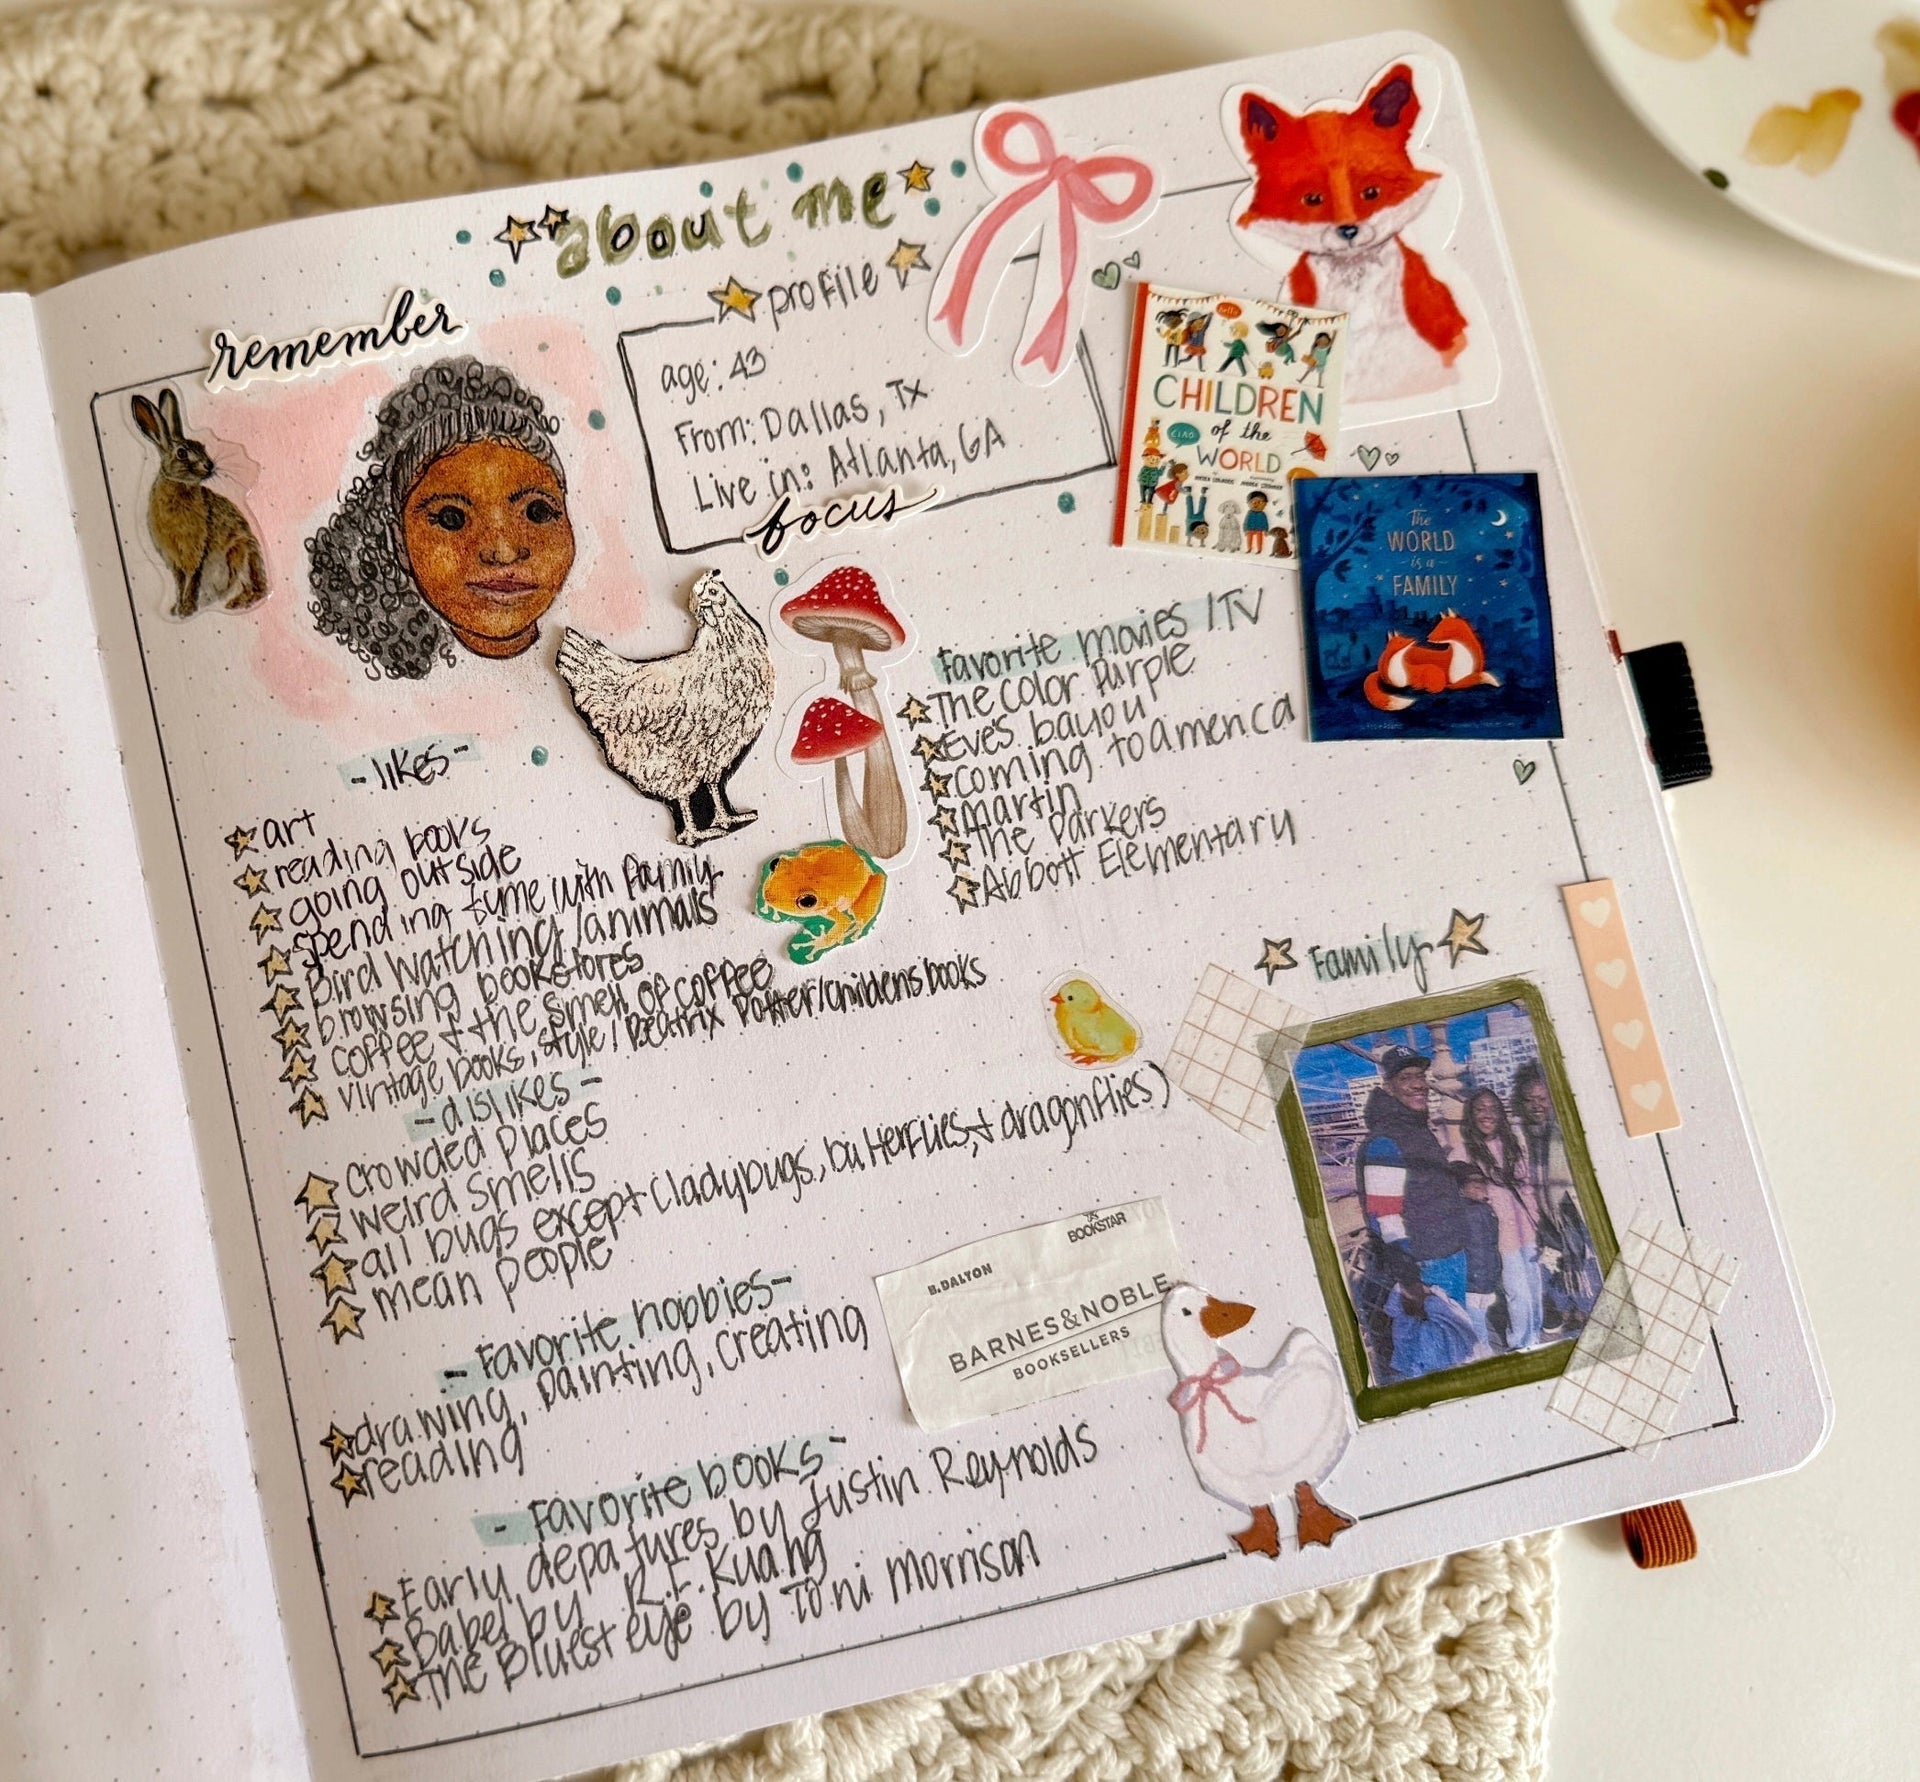 about me
remember
profile
age: 43
From: Dallas, Tx
Live in: Atlanta, GA
focus
hello
CHILDREN
of the
WORLD
CIAO
The
WORLD
is a
FAMILY
Favorite movies / TV
The Color Purple
Eve's bayou
coming to america
martin
The Parkers
Abbott Elementary
- likes -
art
reading books
going outside
spending time with family
Bird watching/animals
browsing bookstores
coffee & the smell of coffee
vintage books, style / Beatrix Potter/childens books
- dislikes -
crowded places
weird smells
all bugs except (ladybugs, butterflies, & dragonflies)
mean people
Family
- Favorite hobbies -
drawing, painting, creating
reading
BOOKSTAR
B. DALTON
BARNES & NOBLE
BOOKSELLERS
- Favorite books -
Early depatures by Justin Reynolds
Babel by R.F. Kuang
The Bluest eye by Toni Morrison